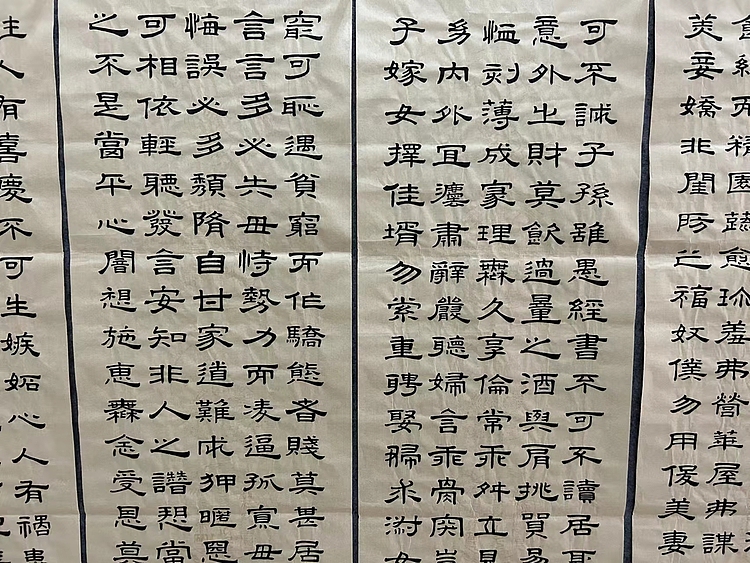 食約而精園蔬愈珍羞弗營華屋弗謀
美妾嬌非閨房之福奴僕勿用俊美妻
可不誠子孫雖愚經書不可不讀居
意外之財莫飲過量之酒與肩挑貿易
恤刻薄成家理霖久享倫常乖舛立見
多內外宜灋肅辭嚴聽婦言乖骨肉豈
子嫁女擇佳壻勿索重聘娶婦求淑女
窮可恥遇貧窮而作驕態者賤莫甚居
言言多必失毋恃勢力而凌逼孤寡毋
悔誤必多頹隋自甘家道難成狎暱恩
可相依輕聽發言安知非人之譖愬當
之不是當平心闇想施惠霖念受恩莫
往人有喜慶不可生嫉妬心人有禍患